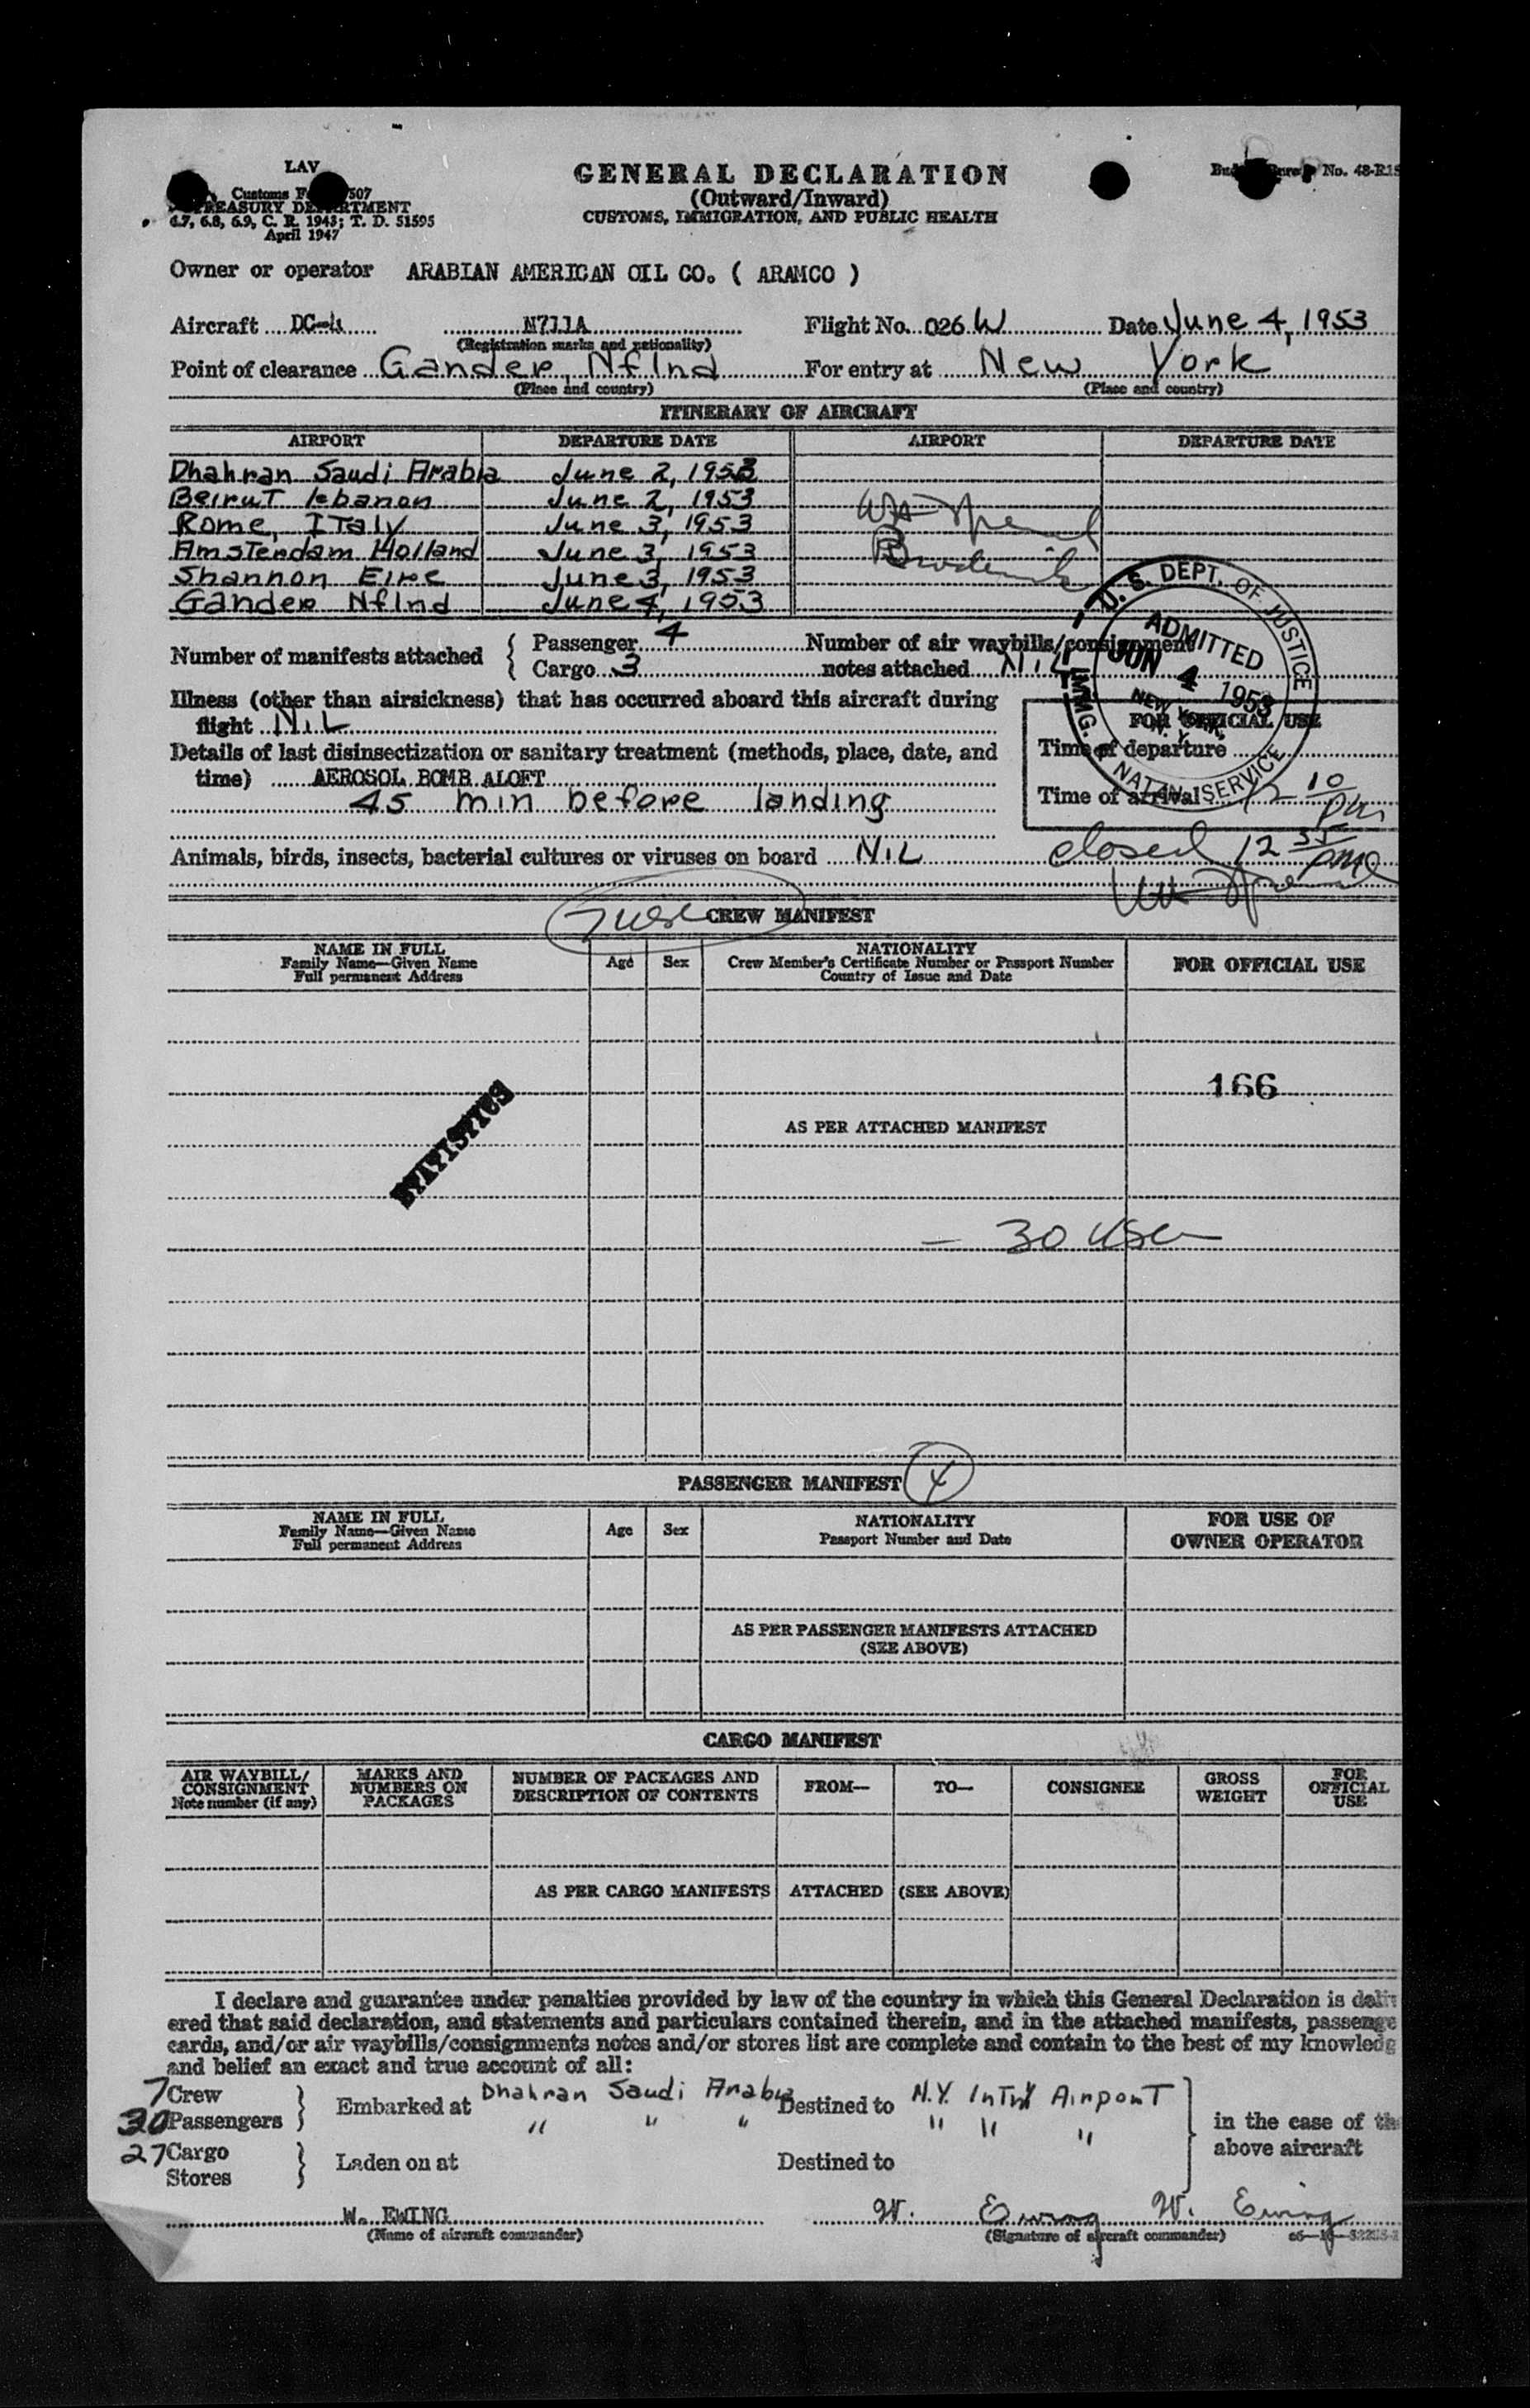 LAV
Customs F 507
TREASURY DEPARTMENT
6.7, 6.8, 6.9, C. R. 1943; T. D. 51595
April 1947
GENERAL DECLARATION
(Outward/Inward)
CUSTOMS, IMMIGRATION, AND PUBLIC HEALTH
No. 48-R15
Owner or operator ARABIAN AMERICAN OIL CO. ( ARAMCO )
Aircraft DC-4 N711A Flight No. 026 W Date June 4, 1953
(Registration marks and nationality)
Point of clearance Gander, Nflnd For entry at New York
(Place and country) (Place and country)
ITINERARY OF AIRCRAFT
AIRPORT DEPARTURE DATE AIRPORT DEPARTURE DATE
Dhahran Saudi Arabia June 2, 1953
Beirut lebanon June 2, 1953
Rome, Italy June 3, 1953
Amsterdam Holland June 3, 1953
Shannon Eire June 3, 1953
Gander Nflnd June 4, 1953
Number of manifests attached { Passenger 4
Cargo 3
Number of air waybills/consignment
notes attached NIL
U. S. DEPT. OF JUSTICE
ADMITTED
JUN 4 1953
NEW YORK, N. Y.
IMMG. & NATZN. SERVICE
Illness (other than airsickness) that has occurred aboard this aircraft during
flight NIL
FOR OFFICIAL USE
Time of departure
Time of arrival 12 10 pm
Details of last disinsectization or sanitary treatment (methods, place, date, and
time) AEROSOL BOMB ALOFT
45 min before landing
Animals, birds, insects, bacterial cultures or viruses on board NIL
closed 12 35 pm
CREW MANIFEST
NAME IN FULL
Family Name—Given Name
Full permanent Address
Age
Sex
NATIONALITY
Crew Member's Certificate Number or Passport Number
Country of Issue and Date
FOR OFFICIAL USE
166
STATISTICS
AS PER ATTACHED MANIFEST
— 30 USC
PASSENGER MANIFEST 4
NAME IN FULL
Family Name—Given Name
Full permanent Address
Age
Sex
NATIONALITY
Passport Number and Date
FOR USE OF
OWNER OPERATOR
AS PER PASSENGER MANIFESTS ATTACHED
(SEE ABOVE)
CARGO MANIFEST
AIR WAYBILL/
CONSIGNMENT
Note number (if any)
MARKS AND
NUMBERS ON
PACKAGES
NUMBER OF PACKAGES AND
DESCRIPTION OF CONTENTS
FROM—
TO—
CONSIGNEE
GROSS
WEIGHT
FOR
OFFICIAL
USE
AS PER CARGO MANIFESTS ATTACHED (SEE ABOVE)
I declare and guarantee under penalties provided by law of the country in which this General Declaration is deliv
ered that said declaration, and statements and particulars contained therein, and in the attached manifests, passenge
cards, and/or air waybills/consignments notes and/or stores list are complete and contain to the best of my knowledg
and belief an exact and true account of all:
7 Crew } Embarked at Dhahran Saudi Arabia Destined to N.Y. Int'l Airport
30 Passengers " " " " " "
in the case of th
above aircraft
27 Cargo } Laden on at Destined to
Stores
W. EWING W. Ewing W. Ewing
(Name of aircraft commander) (Signature of aircraft commander)